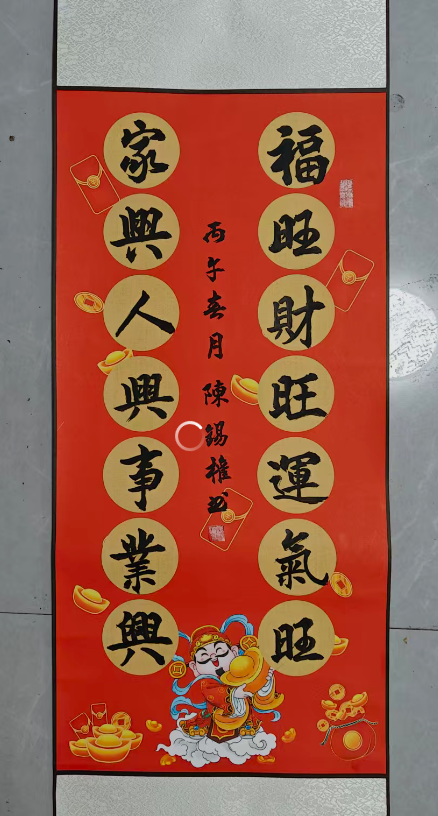 福旺財旺運氣旺
家興人興事業興
丙午春月陳錫權書